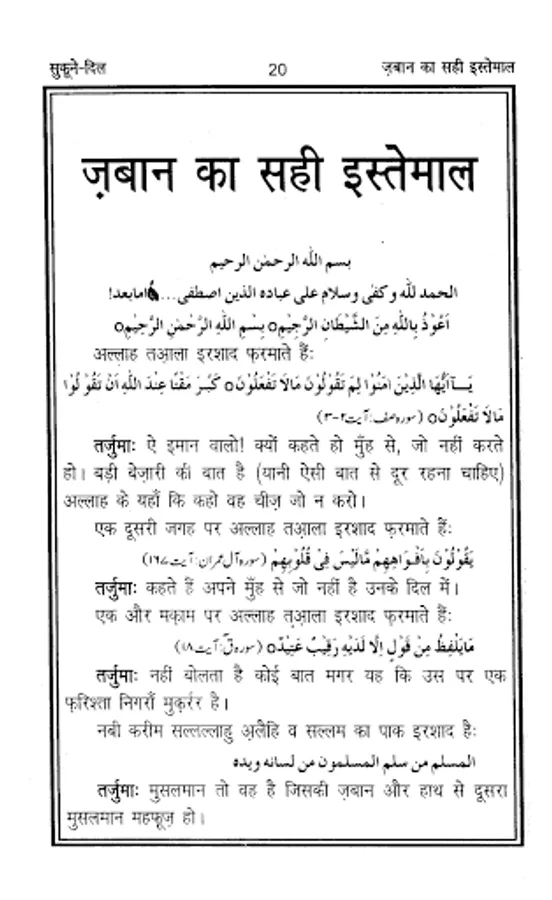 सुकूने-दिल 20 ज़बान का सही इस्तेमाल
ज़बान का सही इस्तेमाल
بسم الله الرحمٰن الرحيم
الحمد لله وكفى وسلام على عباده الذين اصطفى... امابعد!
اَعُوْذُ بِاللّٰهِ مِنَ الشَّيْطَانِ الرَّجِيْمِ○ بِسْمِ اللّٰهِ الرَّحْمٰنِ الرَّحِيْمِ○
अल्लाह तआ़ला इरशाद फ़रमाते हैं:
يَـٰٓاَيُّهَا الَّذِيْنَ اٰمَنُوْا لِمَ تَقُوْلُوْنَ مَالَا تَفْعَلُوْنَ○ كَبُرَ مَقْتًا عِنْدَ اللّٰهِ اَنْ تَقُوْلُوْا
مَالَا تَفْعَلُوْنَ○ (سورہ صف: آیت ۲-۳)
तर्जुमाः ऐ इमान वालो! क्यों कहते हो मुँह से, जो नहीं करते
हो। बड़ी बेज़ारी की बात है (यानी ऐसी बात से दूर रहना चाहिए)
अल्लाह के यहाँ कि कहो वह चीज़ जो न करो।
एक दूसरी जगह पर अल्लाह तआ़ला इरशाद फ़रमाते हैं:
يَقُوْلُوْنَ بِاَفْوَاهِهِمْ مَّالَيْسَ فِىْ قُلُوْبِهِمْ (سورہ آل عمران: آیت ۱۶۷)
तर्जुमाः कहते हैं अपने मुँह से जो नहीं है उनके दिल में।
एक और मक़ाम पर अल्लाह तआ़ला इरशाद फ़रमाते हैं:
مَايَلْفِظُ مِنْ قَوْلٍ اِلَّا لَدَيْهِ رَقِيْبٌ عَتِيْدٌ○ (سورہ ق: آیت ۱۸)
तर्जुमाः नहीं बोलता है कोई बात मगर यह कि उस पर एक
फ़रिश्ता निगराँ मुक़र्रर है।
नबी करीम सल्लल्लाहु अ़लैहि व सल्लम का पाक इरशाद है:
المسلم من سلم المسلمون من لسانه ويده
तर्जुमाः मुसलमान तो वह है जिसकी ज़बान और हाथ से दूसरा
मुसलमान महफ़ूज़ हो।